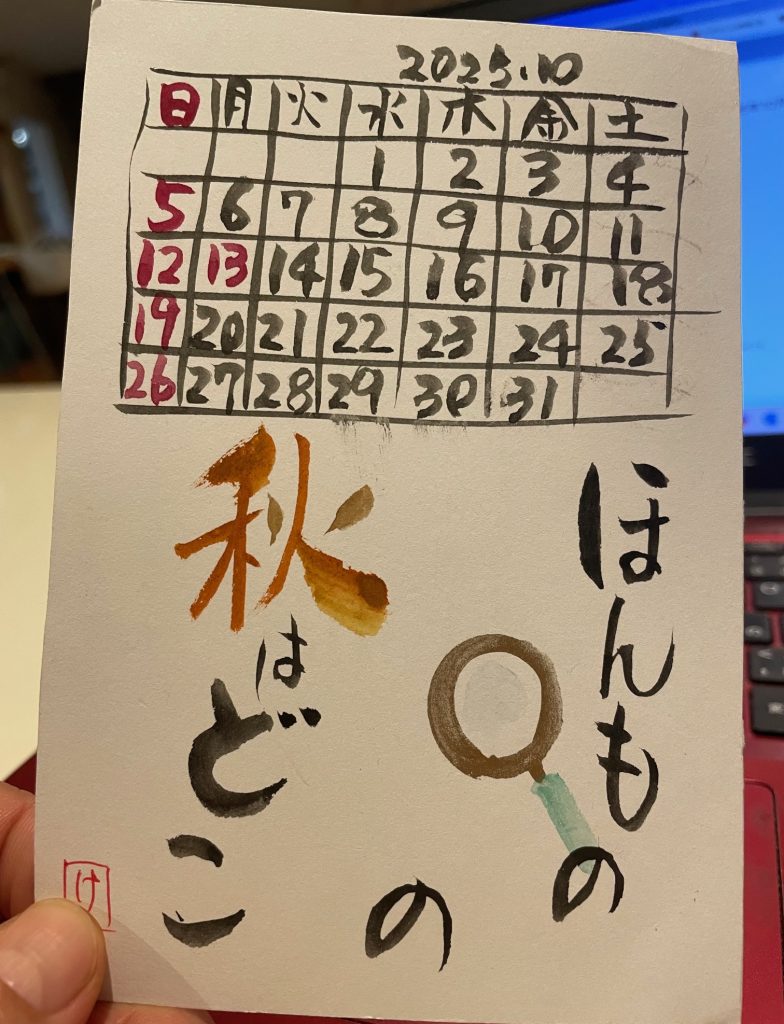 2025.10
日 月 火 水 木 金 土
1 2 3 4
5 6 7 8 9 10 11
12 13 14 15 16 17 18
19 20 21 22 23 24 25
26 27 28 29 30 31
ほんもの
の
秋はどこ
け